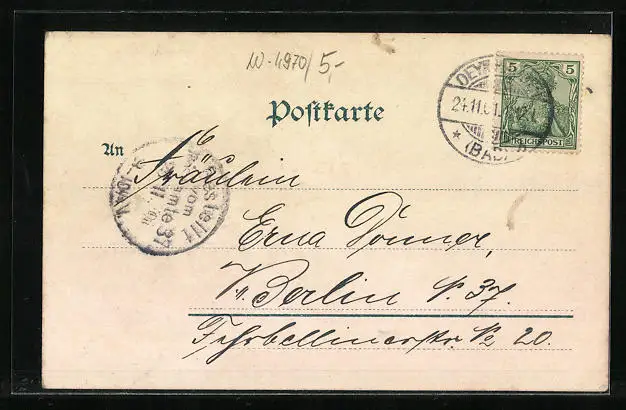 W-4970/5,-
Postkarte
5 5
REICHSPOST
24.11.01.
(BAD)
An
Bestellt
vom
Postamte 37
Fräulein
Erna Donner,
Berlin N. 37.
Fehrbellinerstr. No 20.